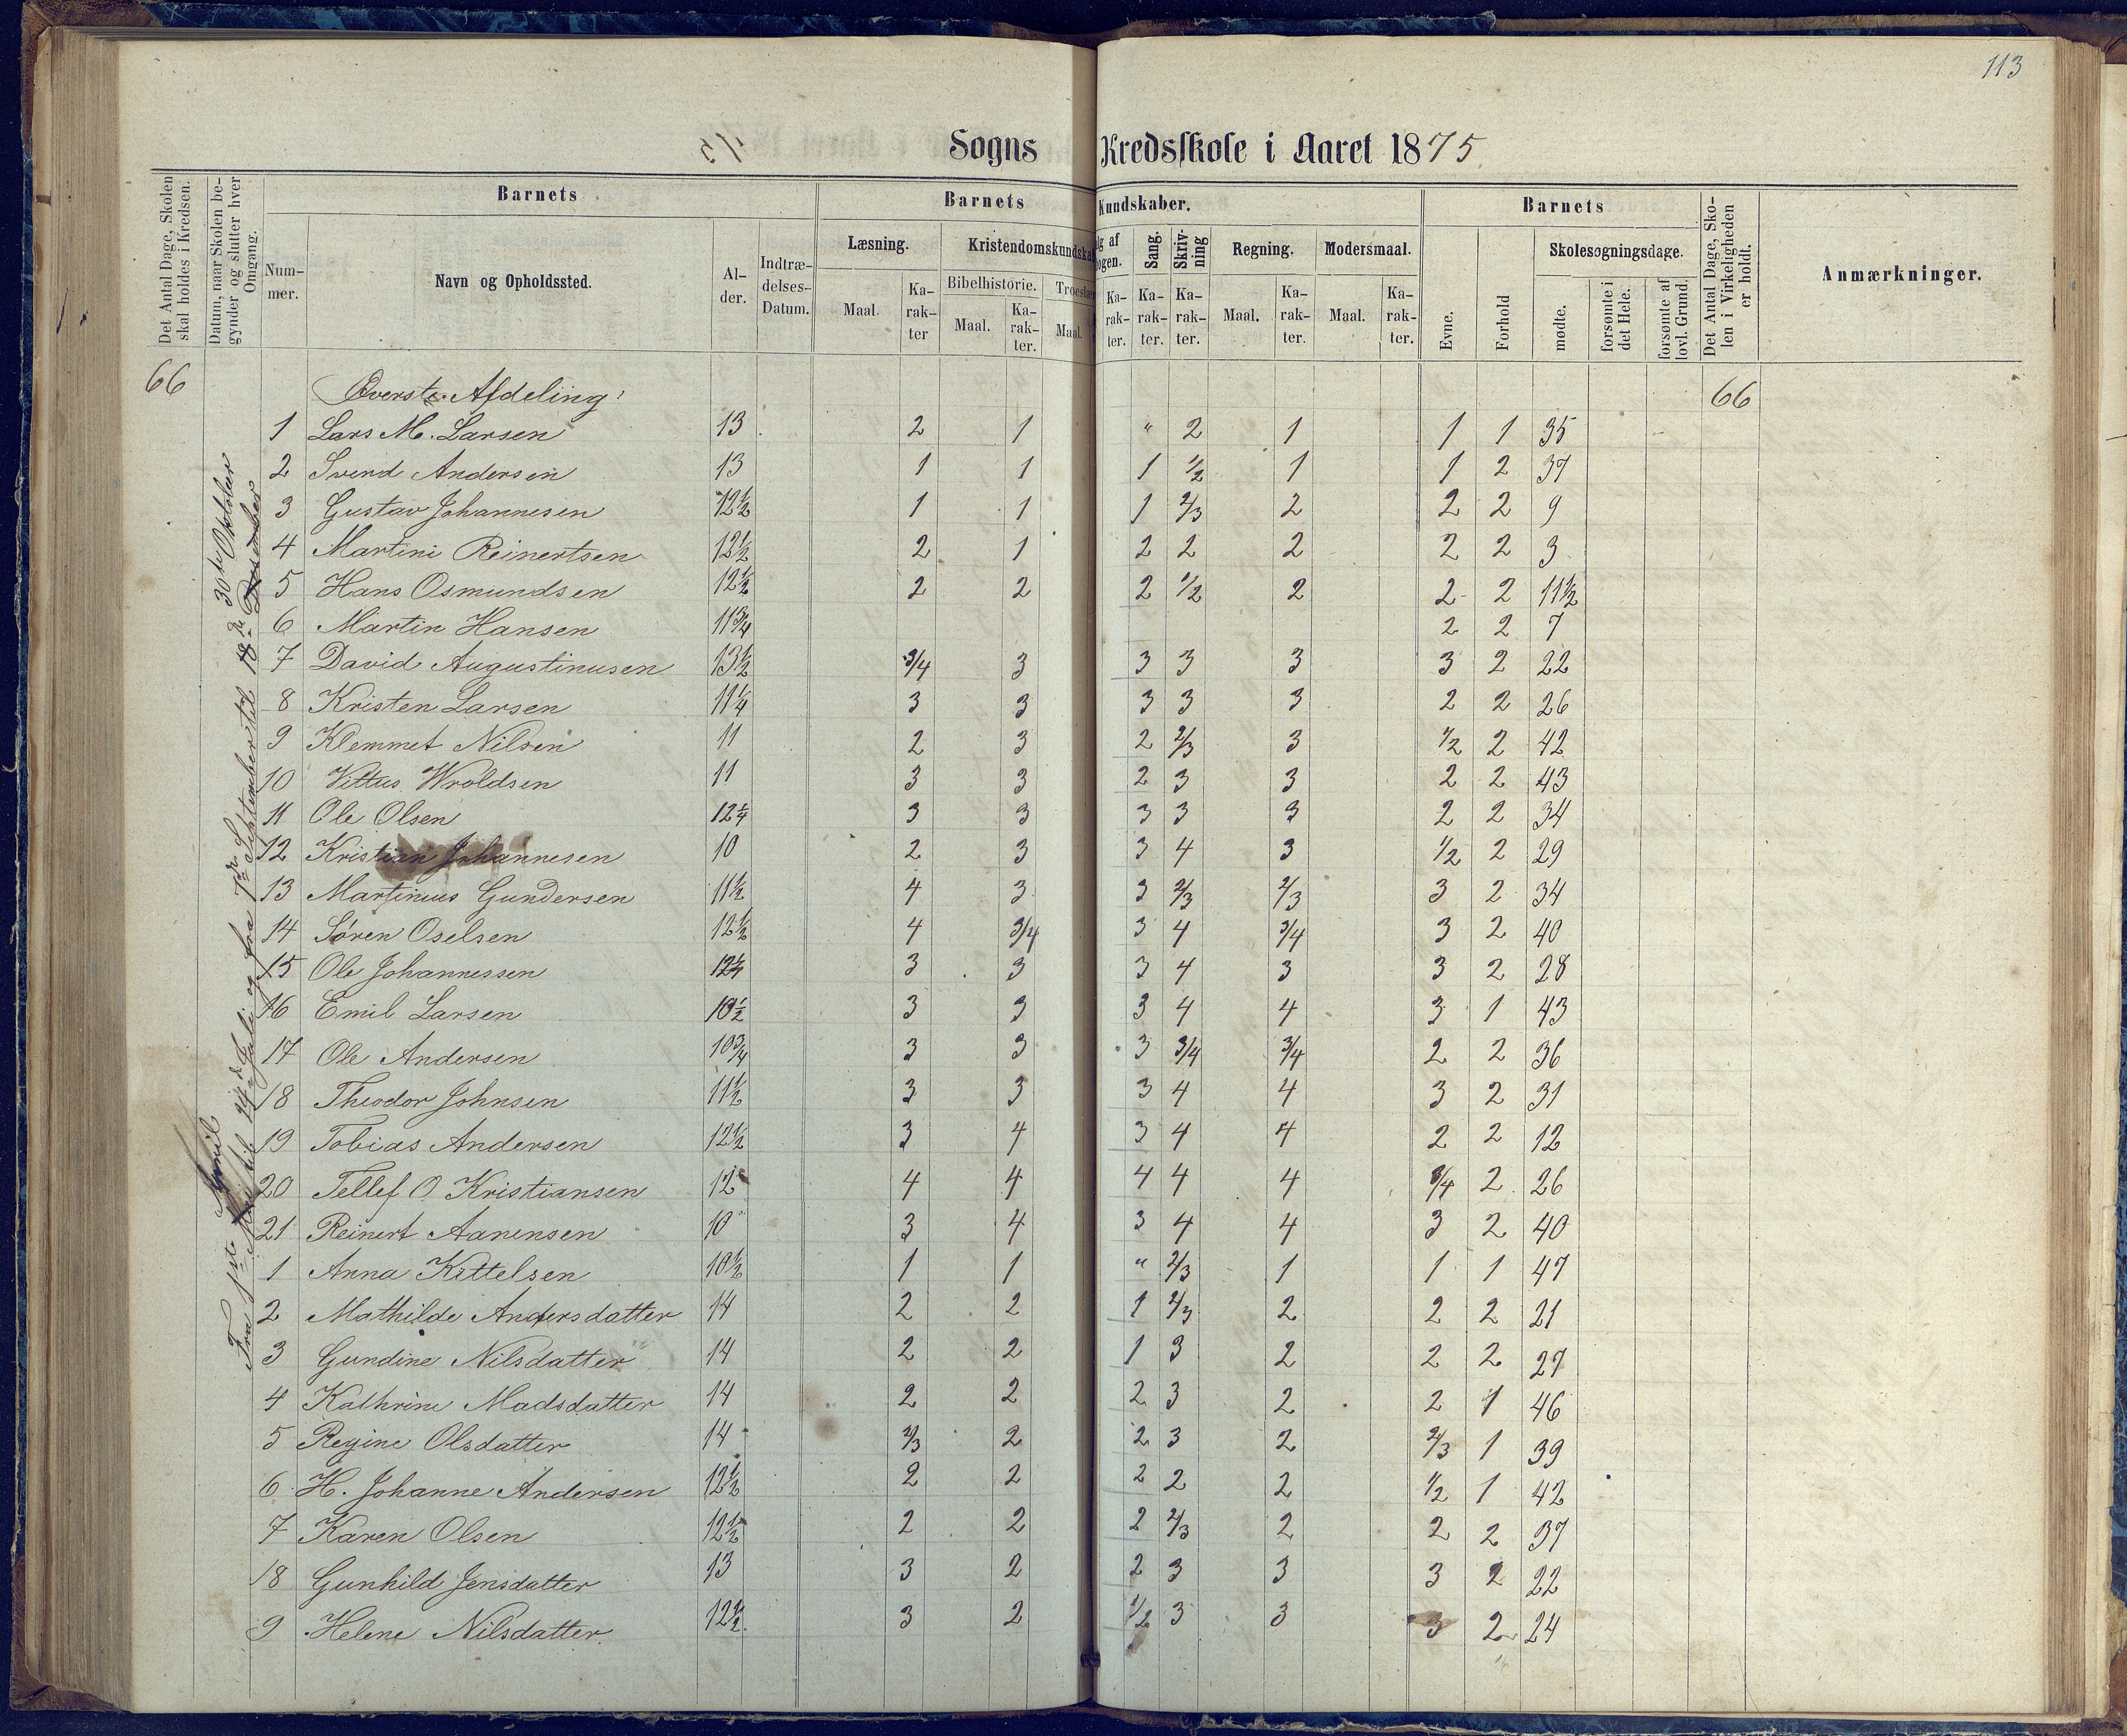 113
Sogns Kredsskole i Aaret 1875
Det Antal Dage, Skolen skal holdes i Kredsen.
Datum, naar Skolen begynder og slutter hver Omgang.
Barnets
Nummer.
Navn og Opholdssted.
Alder.
Indtrædelses-Datum.
Barnets Kundskaber.
Læsning.
Maal.
Karakter
Kristendomskundska
Bibelhistorie.
Maal.
Karakter.
Troeslær
Maal.
lg af
ogen.
Karakter.
Sang.
Karakter.
Skrivning
Karakter.
Regning.
Maal.
Karakter.
Modersmaal.
Maal.
Karakter.
Barnets
Evne.
Forhold
Skolesøgningsdage.
mødte.
forsømte i det Hele.
forsømte af lovl. Grund.
Det Antal Dage, Skolen i Virkeligheden er holdt.
Anmærkninger.
66 Øverste Afdeling: 66
April 30te Oktober
Fra 1ste Mai til 14de Juli og fra 7de September til 18de Desember
1 Lars M. Larsen 13 2 1 " 2 1 1 1 35
2 Svend Andersen 13 1 1 1 1/2 1 1 2 37
3 Gustav Johannesen 12 1/2 1 1 1 2/3 2 2 2 9
4 Martini Reinertsen 12 1/2 2 1 2 2 2 2 2 3
5 Hans Osmundsen 12 1/2 2 2 2 1/2 2 2 2 11 1/2
6 Martin Hansen 11 3/4 2 2 7
7 David Augustinusen 13 1/2 3/4 3 3 3 3 3 2 22
8 Kristen Larsen 11 1/4 3 3 3 3 3 2 2 26
9 Klemmet Nilsen 11 2 3 2 2/3 3 1/2 2 42
10 Vittus Wroldsen 11 3 3 2 3 3 2 2 43
11 Ole Olsen 12 1/4 3 3 3 3 3 2 2 34
12 Kristian Johannesen 10 2 3 3 4 3 1/2 2 29
13 Martinius Gundersen 11 1/2 4 3 3 2/3 2/3 3 2 34
14 Søren Oselsen 12 1/2 4 3/4 3 4 3/4 3 2 40
15 Ole Johannessen 12 1/4 3 3 3 4 3 3 2 28
16 Emil Larsen 10 1/2 3 3 3 4 4 3 1 43
17 Ole Andersen 10 3/4 3 3 3 3/4 3/4 2 2 36
18 Theodor Johnsen 11 1/2 3 3 3 4 4 3 2 31
19 Tobias Andersen 12 1/2 3 4 3 4 4 2 2 12
20 Tellef O Kristiansen 12 4 4 4 4 4 3/4 2 26
21 Reinert Aanensen 10 3 4 3 4 4 3 2 40
1 Anna Kittelsen 10 1/2 1 1 " 2/3 1 1 1 47
2 Mathilde Andersdatter 14 2 2 1 2/3 2 2 2 21
3 Gundine Nilsdatter 14 2 2 1 3 2 2 2 27
4 Kathrine Madsdatter 14 2 2 2 3 2 2 1 46
5 Regine Olsdatter 14 2/3 2 2 3 2 2/3 1 39
6 H. Johanne Andersen 12 1/2 2 2 2 2 2 1/2 1 42
7 Karen Olsen 12 1/2 2 2 2 2/3 2 2 2 37
8 Gunhild Jensdatter 13 3 2 2 3 3 3 2 22
9 Helene Nilsdatter 12 1/2 3 2 1/2 3 3 3 2 24